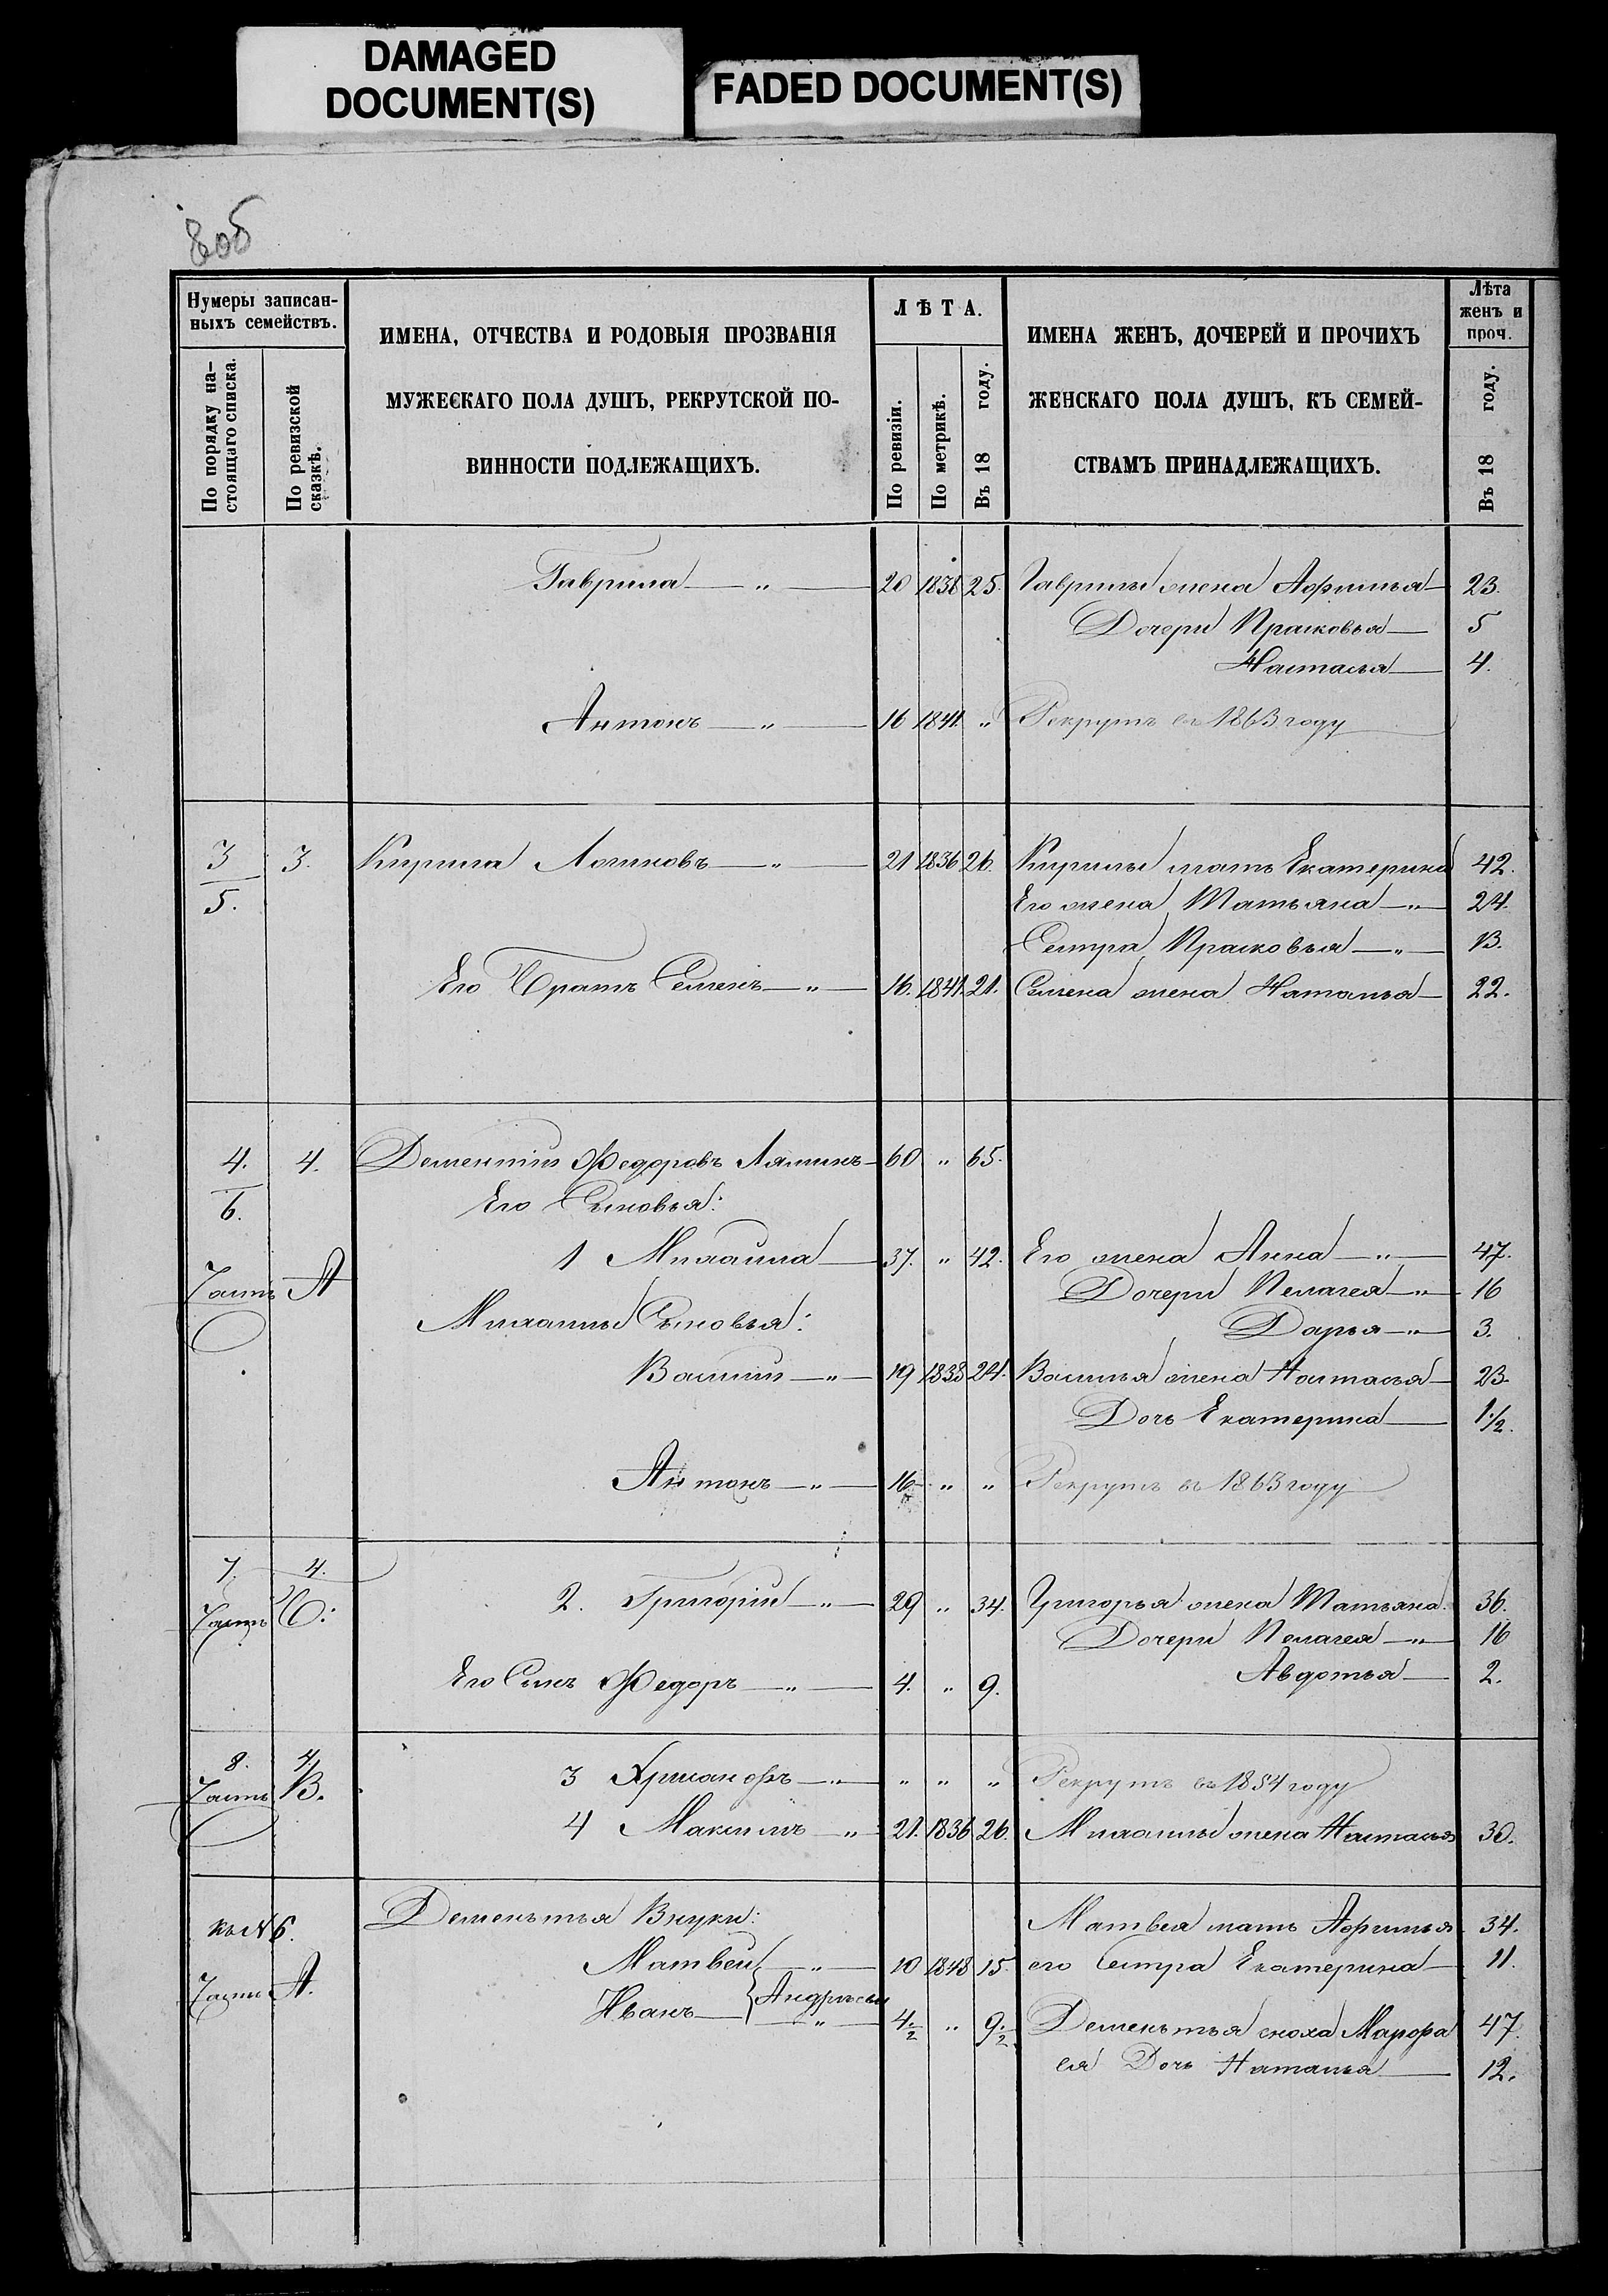 DAMAGED
DOCUMENT(S)
FADED DOCUMENT(S)
8об
Нумеры записан-
ныхъ семействъ.
По порядку на-
стоящаго списка.
По ревизской
сказкѣ.
ИМЕНА, ОТЧЕСТВА И РОДОВЫЯ ПРОЗВАНІЯ
МУЖЕСКАГО ПОЛА ДУШЪ, РЕКРУТСКОЙ ПО-
ВИННОСТИ ПОДЛЕЖАЩИХЪ.
ЛѢТА.
По ревизіи.
По метрикѣ.
Въ 18 году.
ИМЕНА ЖЕНЪ, ДОЧЕРЕЙ И ПРОЧИХЪ
ЖЕНСКАГО ПОЛА ДУШЪ, КЪ СЕМЕЙ-
СТВАМЪ ПРИНАДЛЕЖАЩИХЪ.
Лѣта
женъ и
проч.
Въ 18 году.
Гаврила — „ — 20 1838 25. Гаврилы жена Афимья — 23.
Дочери Прасковья — 5
Настасья — 4.
Антонъ — „ — 16 1841. „ Рекрутъ въ 1863 году
3 3. Кирила Логиновъ — „ — 21 1836 26. Кирилы мать Екатерина 42.
5. Его жена Татьяна — „ — 24.
Сестра Прасковья — „ — 13.
Его Братъ Семенъ — „ — 16. 1841. 21. Семена жена Наталья — 22.
4. 4. Дементій Федоровъ Ляминъ — 60 „ 65.
6. Его Сыновья:
1 Михайла — 37. „ 42. Его жена Анна — „ — 47.
Часть А Дочери Пелагея — „ — 16
Михайлы Сыновья: Дарья — „ — 3.
Василій — „ — 19 1838 24. Василья жена Настасья — 23.
Дочь Екатерина — 1 1/2.
Антонъ — „ — 16 „ „ Рекрутъ въ 1863 году
7. 4.
Часть Б: 2. Григорій — „ — 29 „ 34. Григорья жена Татьяна. 36.
Дочери Пелагея — „ — 16
Его Сынъ Федоръ — „ — 4. „ 9. Авдотья — 2.
8. 4
Часть В. 3 Хрисанфъ — „ — „ „ „ Рекрутъ въ 1854 году
4 Максимъ „ 21. 1836 26. Михайлы жена Настасья 30.
къ № 6. Дементья Внуки: Матвея мать Афимья 34.
Матвей — „ — 10 1848 15. его Сестра Екатерина — 11.
Часть А. Иванъ — } Андреевы — „ — 4 1/2 „ 9 1/2 Дементья сноха Марфа 47.
ея Дочь Наталья — 12.